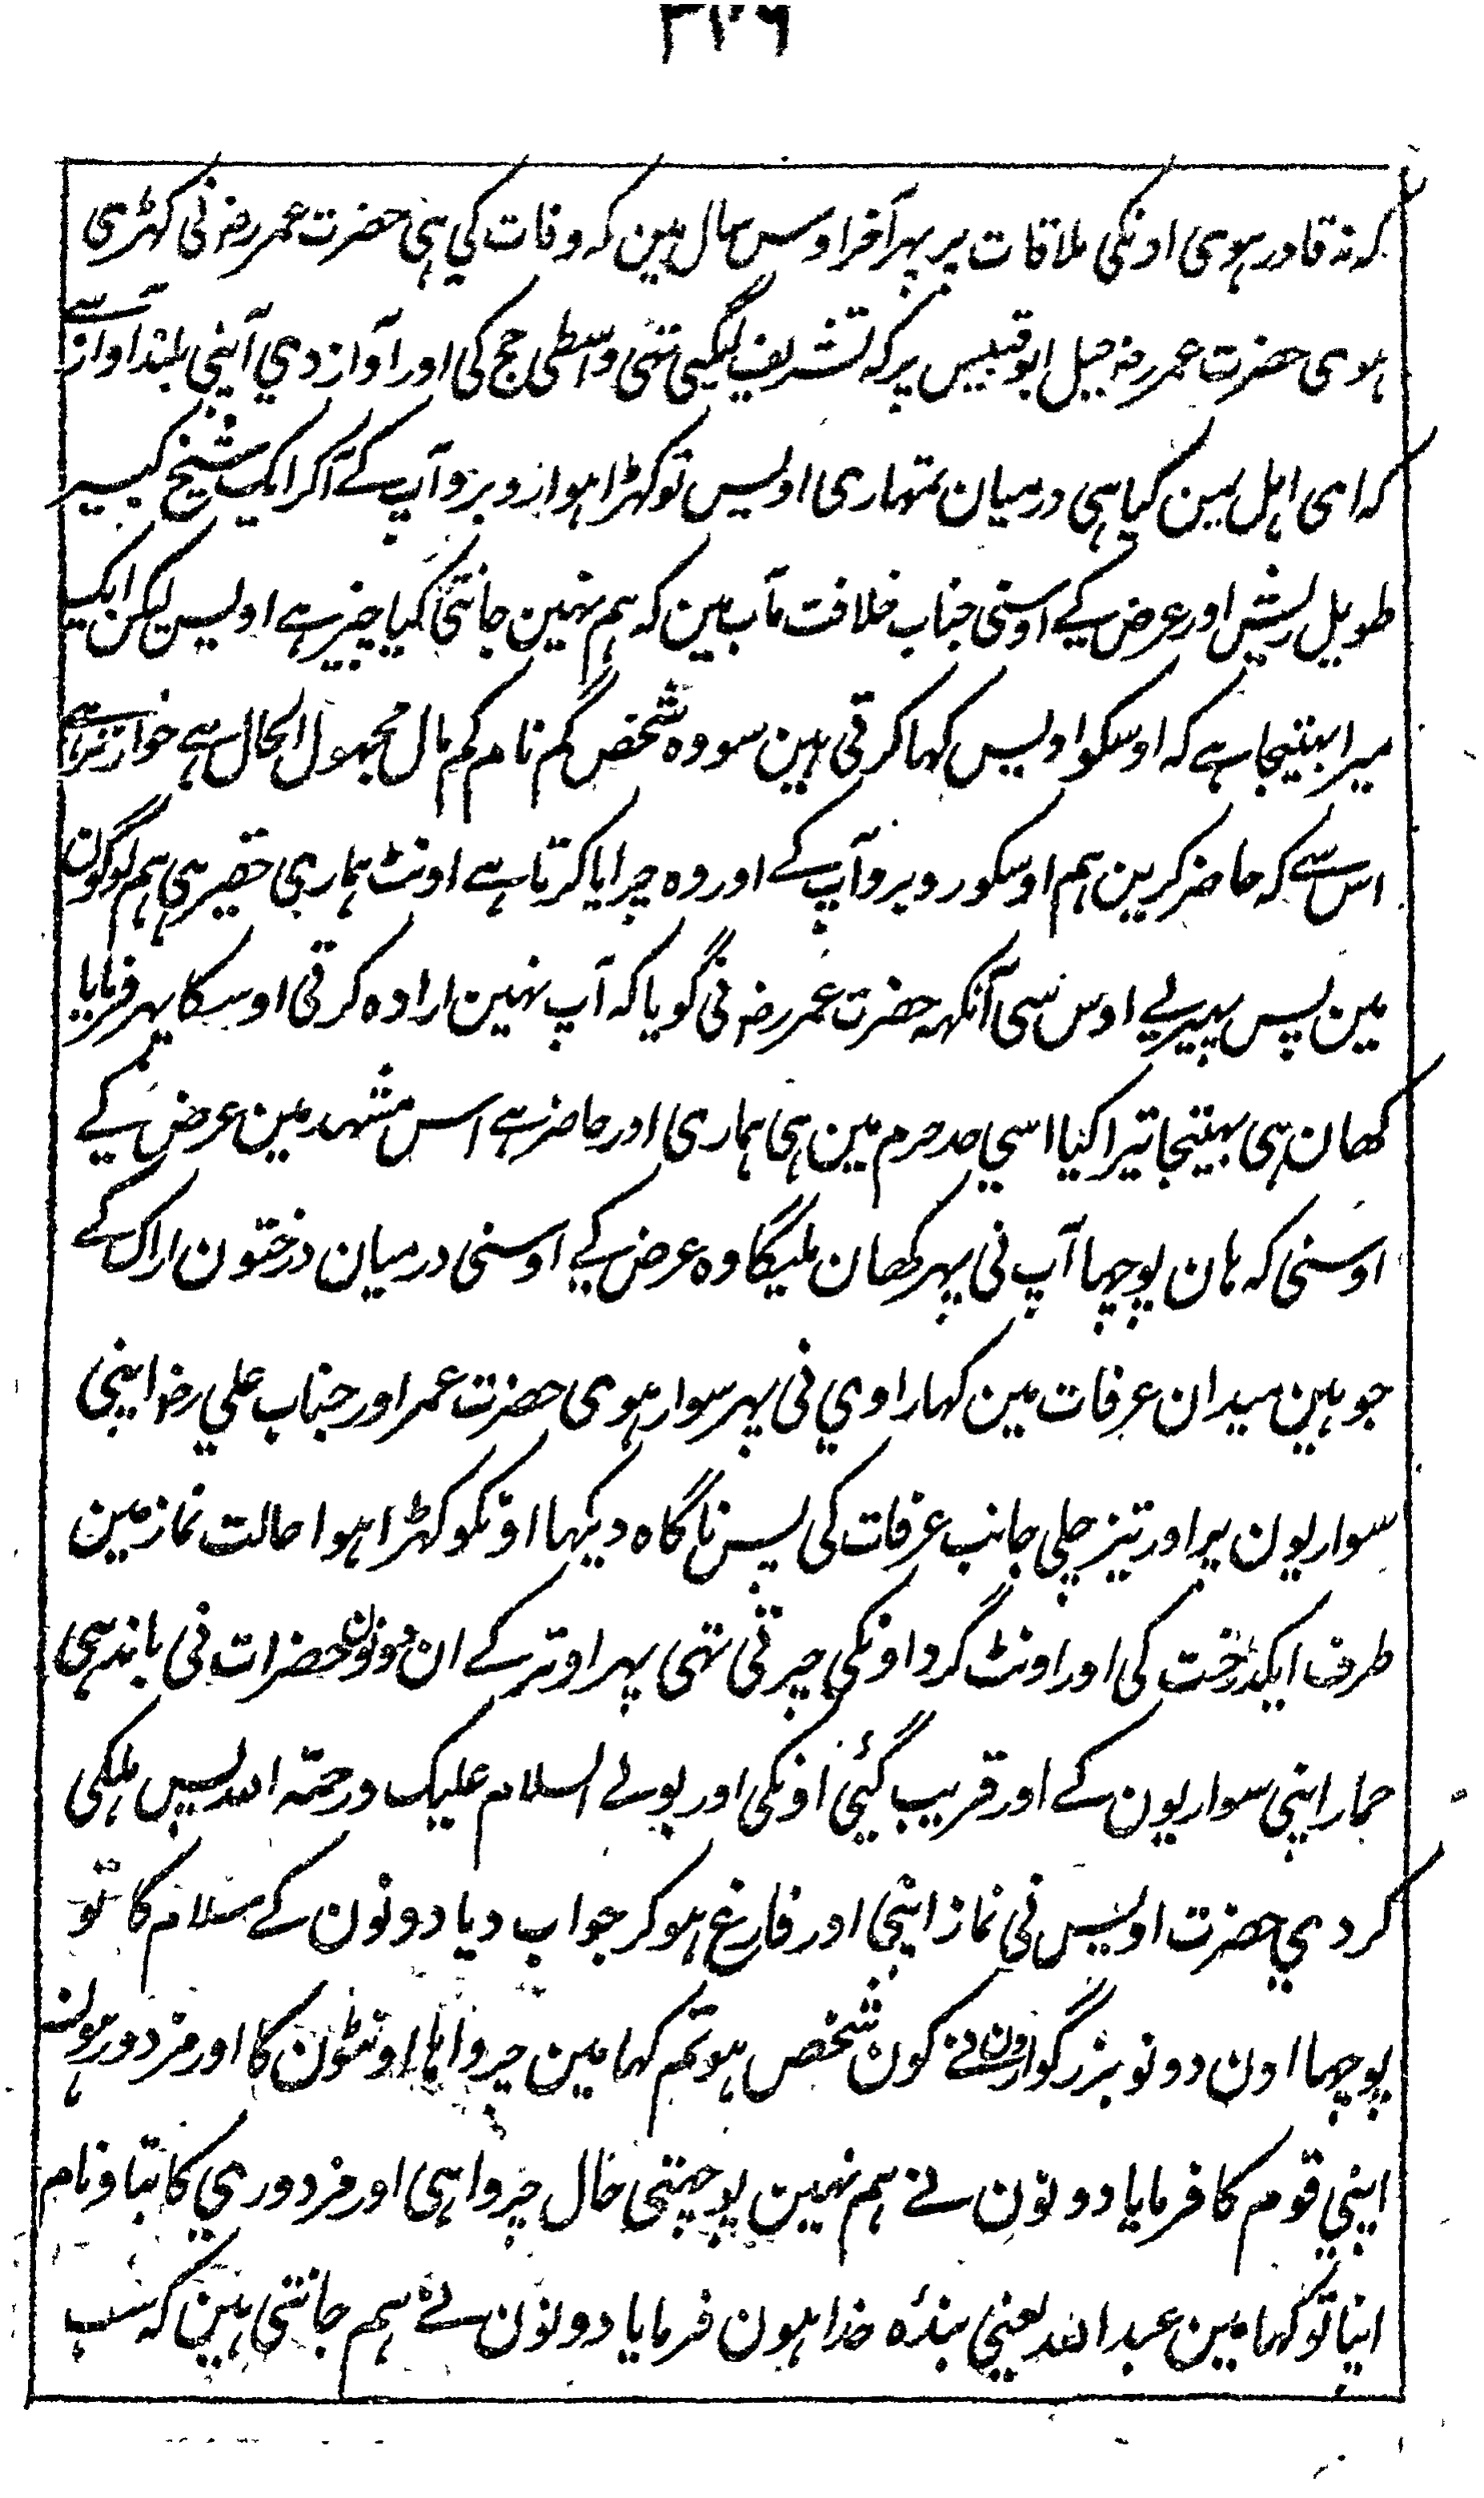 کہ نہ قادر ہوی اونکی ملاقات پر پہر آخر اوس سال مین کہ وفات کی ہی حضرت عمر رضہ نی کھڑی
ہوی حضرت عمر رضہ جبل ابو قبیس پر کہ تشریف لیگیی تہی واسطی حج کی اور آواز دی اپنی بلند اواز سے
کہ ای اہل یمن کیا ہی درمیان تمہاری اویس تو کھڑا ہوا روبرو آپ کے آکر ایک شیخ کبیر
طویل ریش اور عرض کیے اوسنی جناب خلافت مآب مین کہ ہم نہین جانتی کیا چیز ہے اویس لیکن ایک
میرا بہتیجا ہے کہ اوسکو اویس کہا کرتی ہین سو وہ شخص گم نام کم مال مجہول الحال ہے خوار تر ہے
اس سے کہ حاضر کرین ہم اوسکو روبرو آپ کے اور وہ چرایا کرتا ہے اونٹ ہماری حقیر ہی ہم لوگون
مین پس پہیریے اوس سی آنکھہ حضرت عمر رضہ نی گویا کہ آپ نہین ارادہ کرتی اوسکا پہر فرمایا
کھان ہی بہتیجا تیرا کیا اسی حد حرم مین ہی ہماری اور حاضر ہے اس مشہد مین عرض کیے
اوسنی کہ ہان پوچھا آپ نی پہر کھان ملیگا وہ عرض کیے اوسنی درمیان درختون اراک کے
جو ہین میدان عرفات مین کہا راوی نی پہر سوار ہوی حضرت عمر اور جناب علی رضہ اپنی
سواریون پر اور تیز چلی جانب عرفات کی پس ناگاہ دیکہا اونکو کھڑا ہوا حالت نماز مین
طرف ایکدرخت کی اور اونٹ گرد اونکی چرتی تہی پہر اوتر کے ان دونون حضرات نی باندہی
حمار اپنی سواریون کے اور قریب گئیی اونکی اور بولے السلام علیک ورحمۃ اللہ پس ہلکی
کر دی حضرت اویس نی نماز اپنی اور فارغ ہوکر جواب دیا دونون کے سلام کا تو
پوچھا اون دونو بزرگوارون نے کون شخص ہو تم کہا مین چرواہا اونٹون کا اور مزدور ہون
اپنی قوم کا فرمایا دونون نے ہم نہین پوچہتی حال چرواہی اور مزدوری کا بتاو نام
اپنا تو کہا مین عبد اللہ یعنی بندہ خدا ہون فرمایا دونون نے ہم جانتی ہین کہ سب